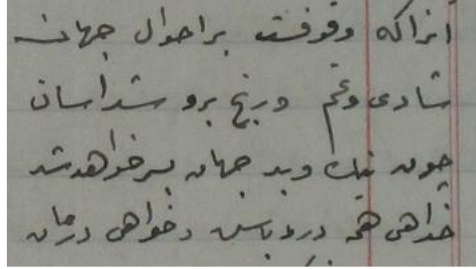 آنراکه وقوفست بر احوال جهان
شادی و غم و رنج برو شد اسان
چون نیک و بد جهان بسر خواهد شد
خواهی همه درد باش و خواهی درمان